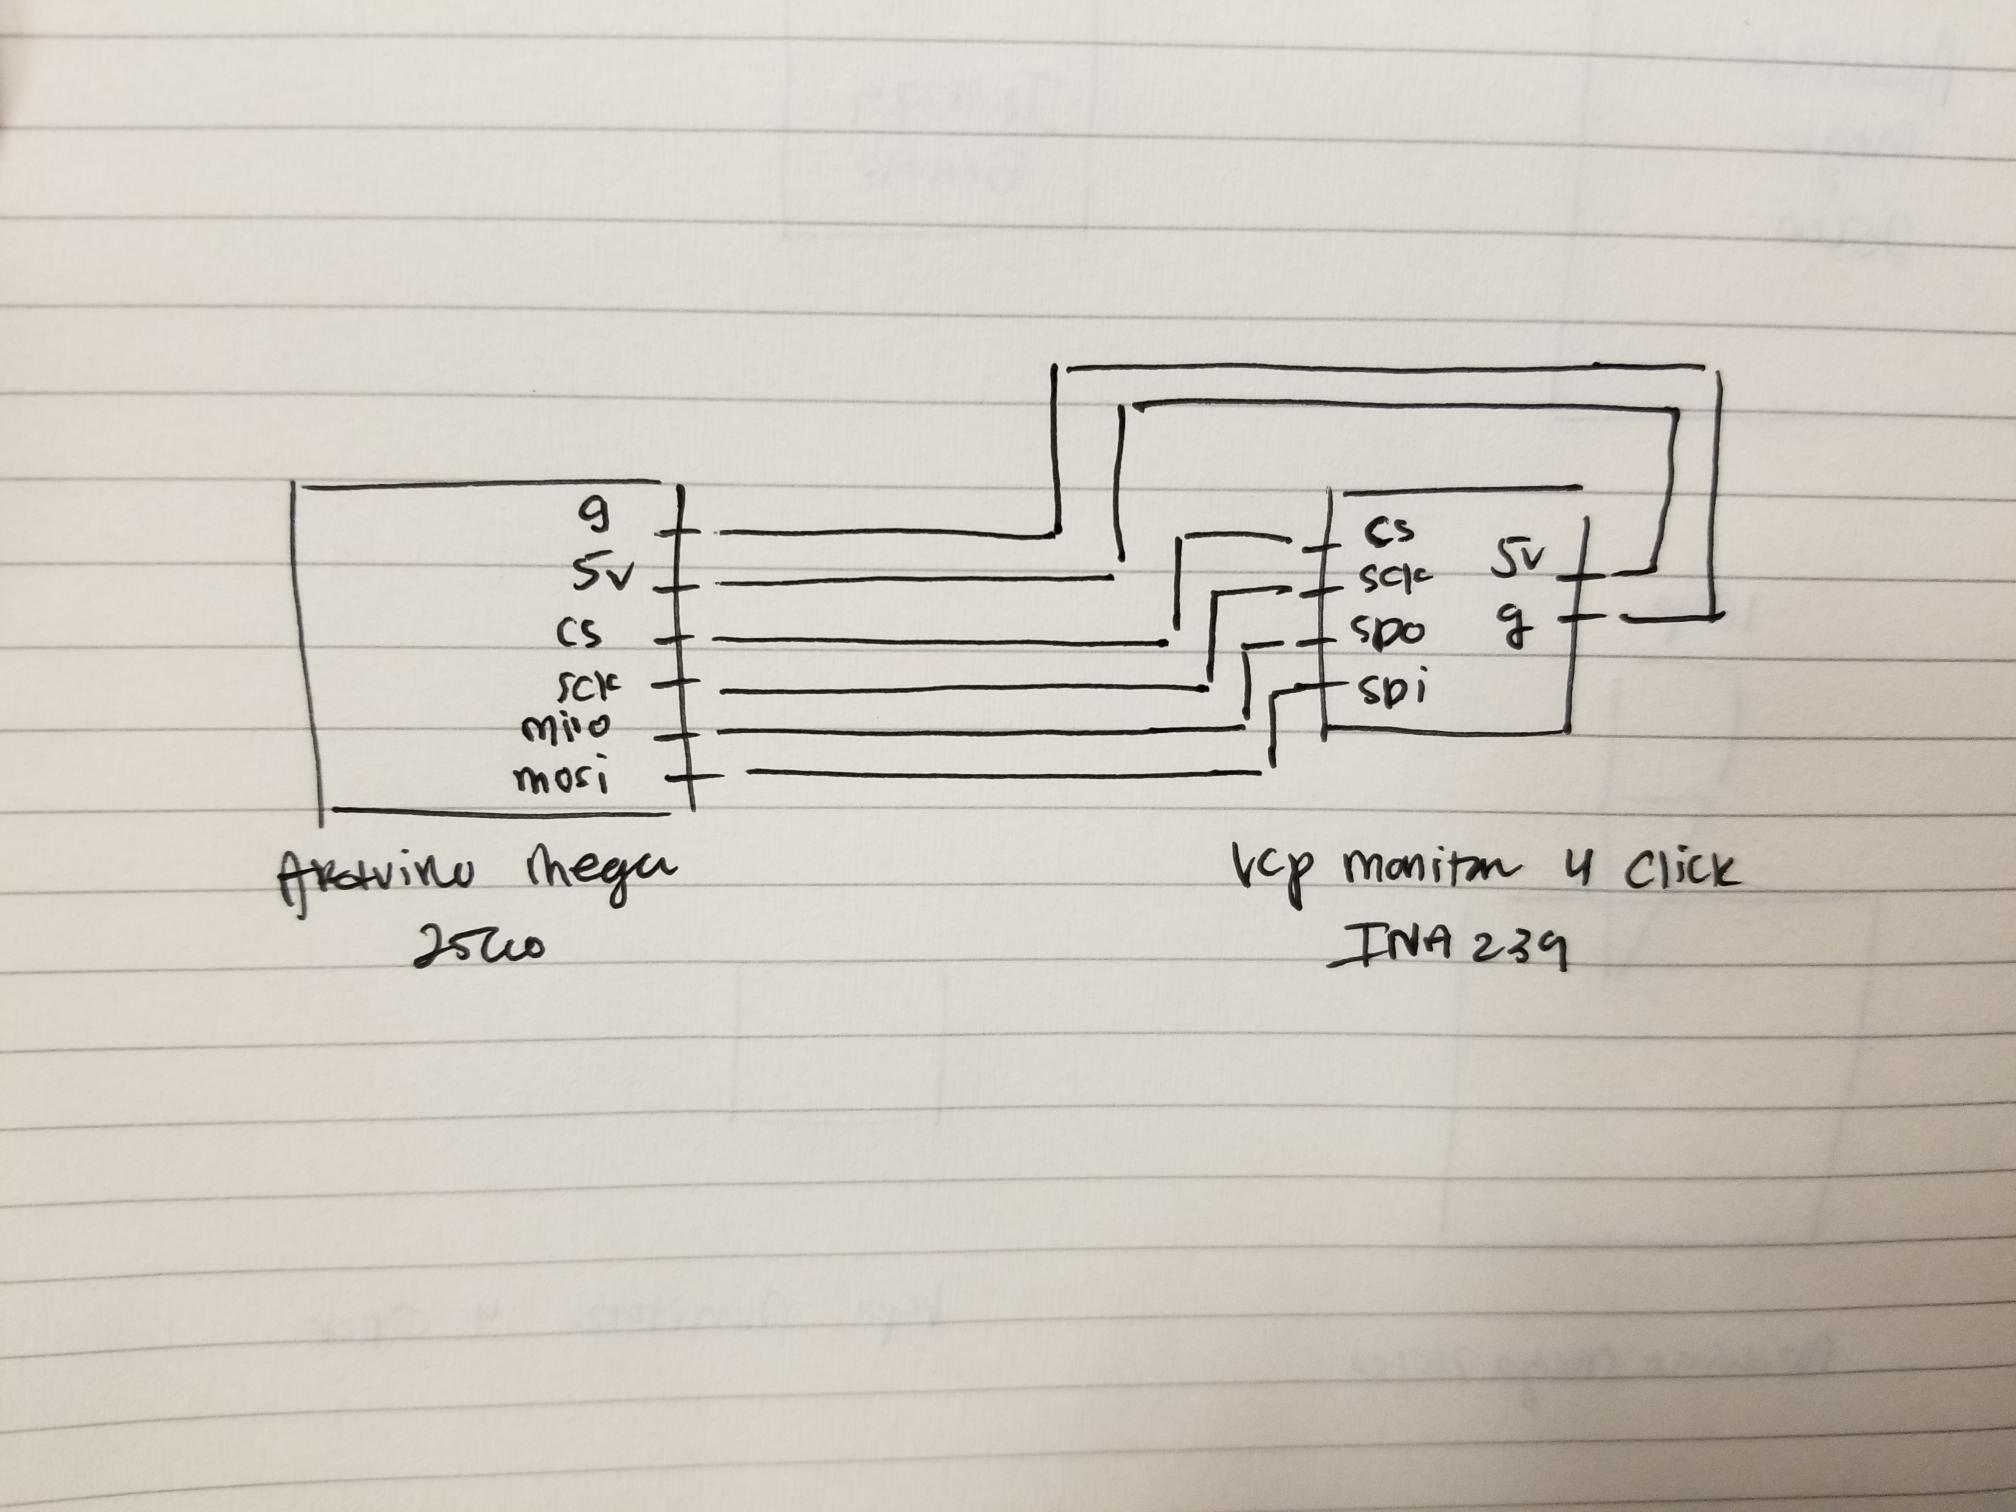 g
5v
cs
sck
miso
mosi
cs
sck
SDO
SDi
5v
g
Arduino mega
2560
Vcp monitor 4 click
INA 239